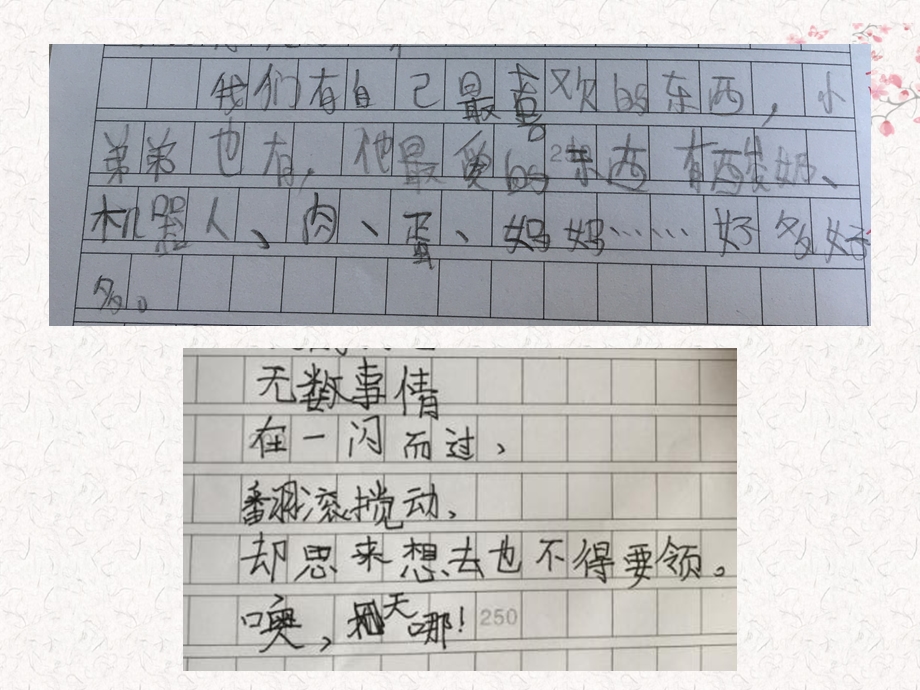 我们有自己最喜欢的东西，小
弟弟也有，他最爱的东西有酸奶、
机器人、肉、蛋、妈妈……好多好
多。
无数事情
在一闪而过、
翻滚搅动、
却思来想去也不得要领。
噢，天哪！
250